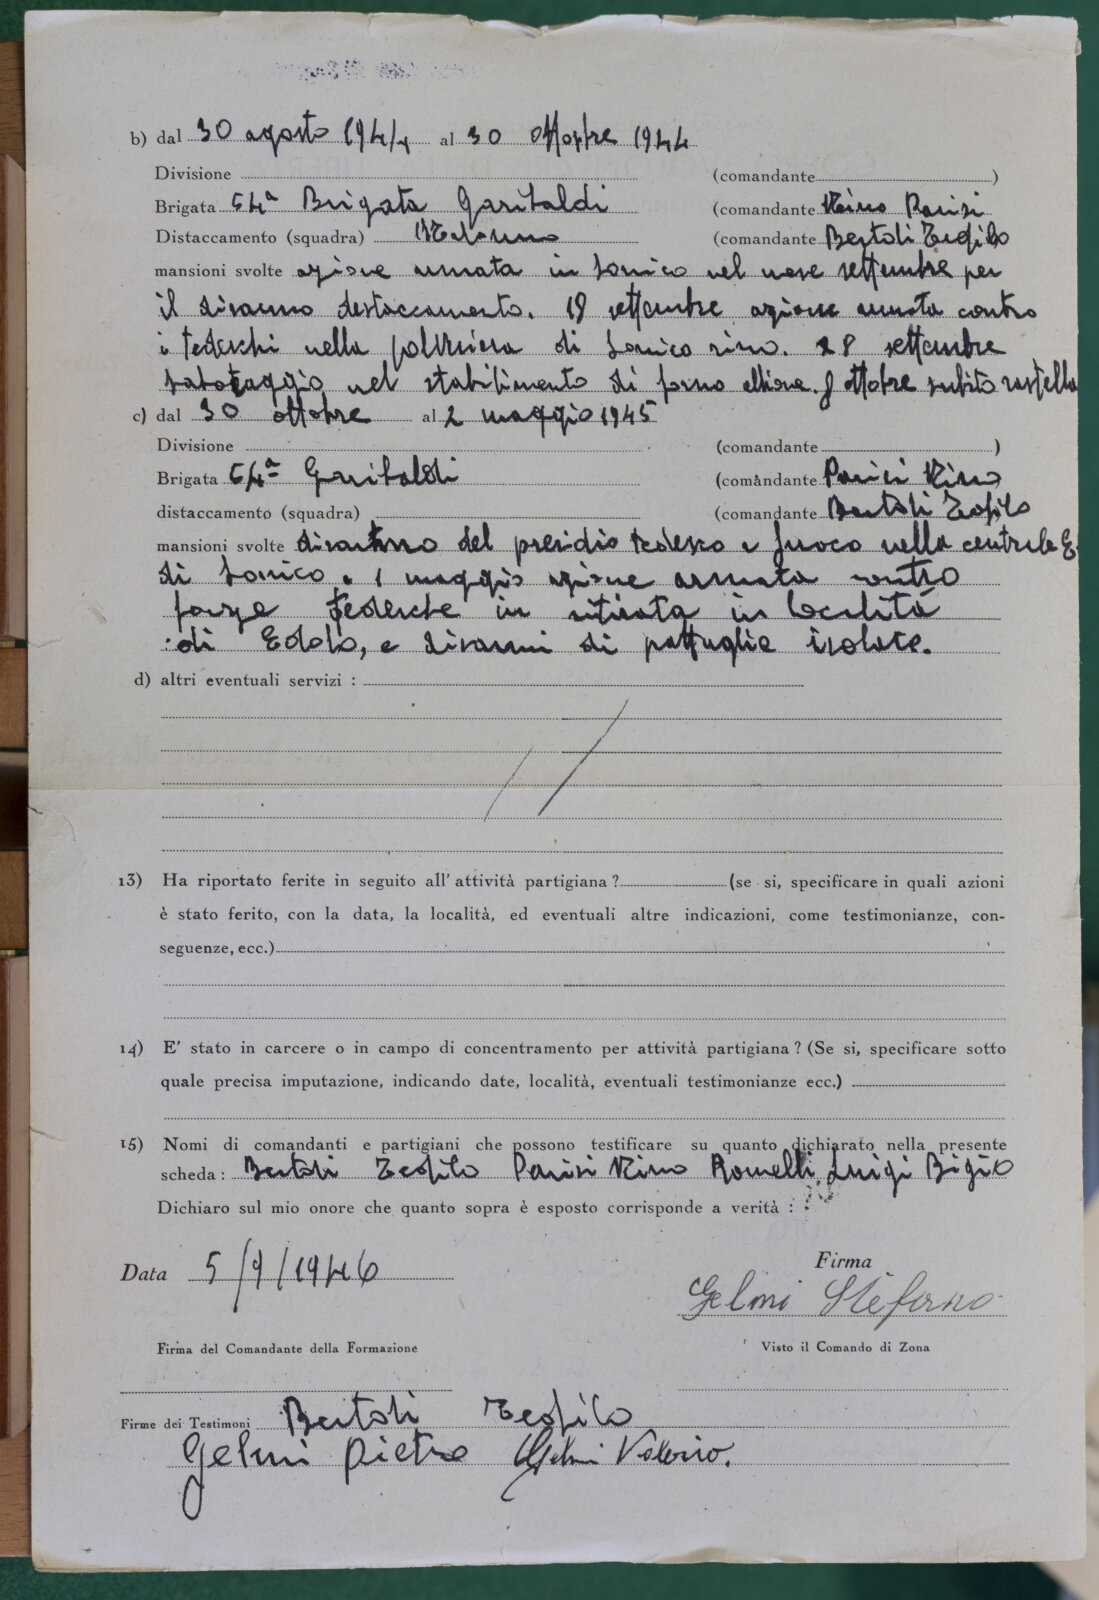 b) dal 30 agosto 1944 al 30 ottobre 1944
Divisione (comandante )
Brigata 54ª Brigata Garibaldi (comandante Nino Parisi
Distaccamento (squadra) (comandante Bertoli Teofilo
mansioni svolte azione armata in Sonico nel mese settembre per
il disarmo destaccamento. 19 settembre azione armata contro
i tedeschi nella polveriera di Sonico rino. 28 settembre
sabotaggio nel stabilimento di forno allione. 8 ottobre subito rastella
c) dal 30 ottobre al 2 maggio 1945
Divisione (comandante )
Brigata 54ª Garibaldi (comandante Parisi Nino
distaccamento (squadra) (comandante Bertoli Teofilo
mansioni svolte disarmo del presidio tedesco e fuoco nella centrale E
di Sonico e 1 maggio azione armata contro
forze tedesche in ritirata in località
di Edolo, e disarmi di pattuglie isolate.
d) altri eventuali servizi :
13) Ha riportato ferite in seguito all' attività partigiana ? (se si, specificare in quali azioni
è stato ferito, con la data, la località, ed eventuali altre indicazioni, come testimonianze, con-
seguenze, ecc.)
14) E' stato in carcere o in campo di concentramento per attività partigiana ? (Se si, specificare sotto
quale precisa imputazione, indicando date, località, eventuali testimonianze ecc.)
15) Nomi di comandanti e partigiani che possono testificare su quanto dichiarato nella presente
scheda : Bertoli Teofilo Parisi Nino Romelli Luigi Bigio
Dichiaro sul mio onore che quanto sopra è esposto corrisponde a verità :
Data 5/9/1946 Firma
Gelmi Stefano
Firma del Comandante della Formazione Visto il Comando di Zona
Firme dei Testimoni Bertoli Teofilo
Gelmi Pietro Gelmi Valerio.